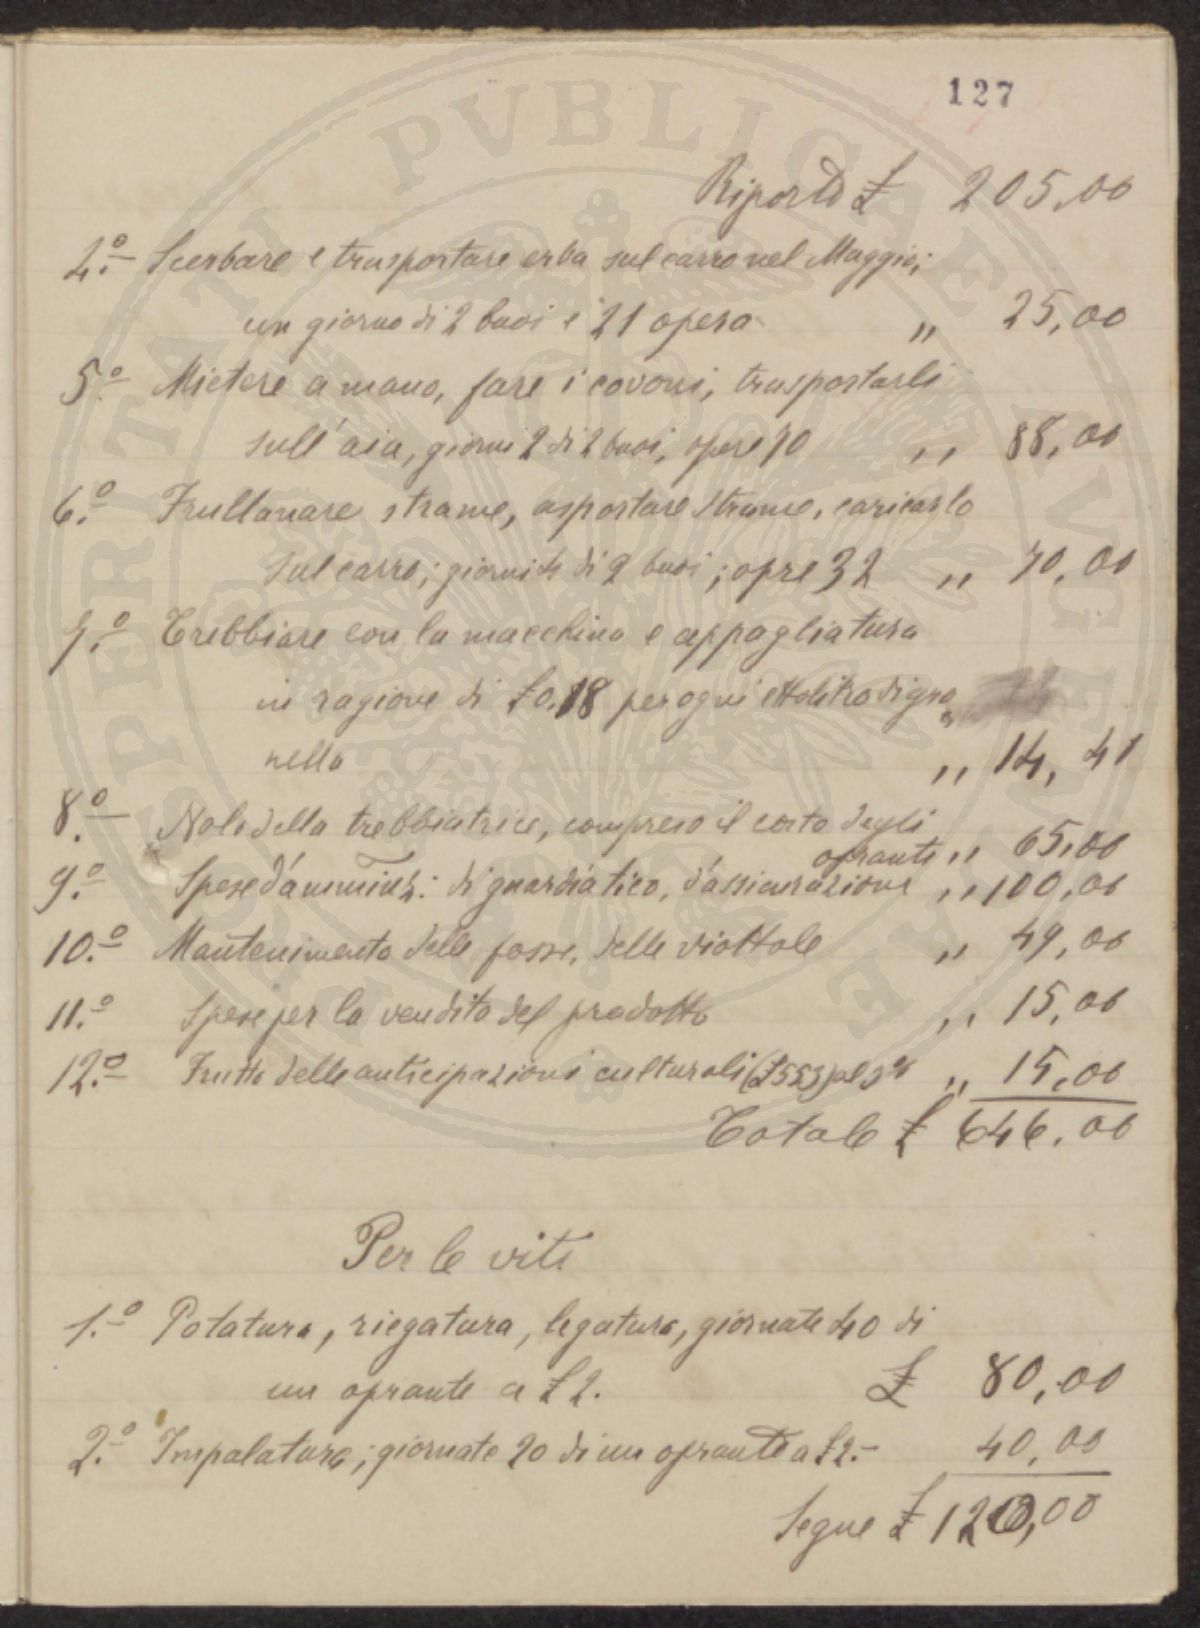 127
Riporto £ 205,00
4.° Scerbare e trasportare erba sul carro nel Maggio;
un giorno di 2 buoi e 21 opera „ 25,00
5.° Mietere a mano, fare i covoni, trasportarli
sull'aia, giorni 2 di 2 buoi, opere 70 „ 88,00
6.° Frullanare strame, asportare strame, caricarlo
sul carro; giorni 4 di 2 buoi; opre 32 „ 70,00
7.° Trebbiare con la macchina e appagliatura
in ragione di £ 0,18 per ogni ettolitro di gra
nella „ 14,41
8.° Nolo della trebbiatrice, compreso il costo degli
opranti „ 65,00
9.° Spese d'amminiz: di guardiatico, d'assicurazione „ 100,00
10.° Mantenimento delle fosse, delle viottole „ 49,00
11.° Spese per la vendita del prodotto „ 15,00
12.° Frutto delle anticipazioni culturali (£ 553) al 3% „ 15,00
Totale £ 646,00
Per le viti
1.° Potatura, riegatura, legatura, giornate 40 di
un oprante a £ 2. £ 80,00
2.° Impalatura; giornate 20 di un oprante a £ 2.- 40,00
Segue £ 120,00
PROSPERITATI PVBLICAE AVGENDAE